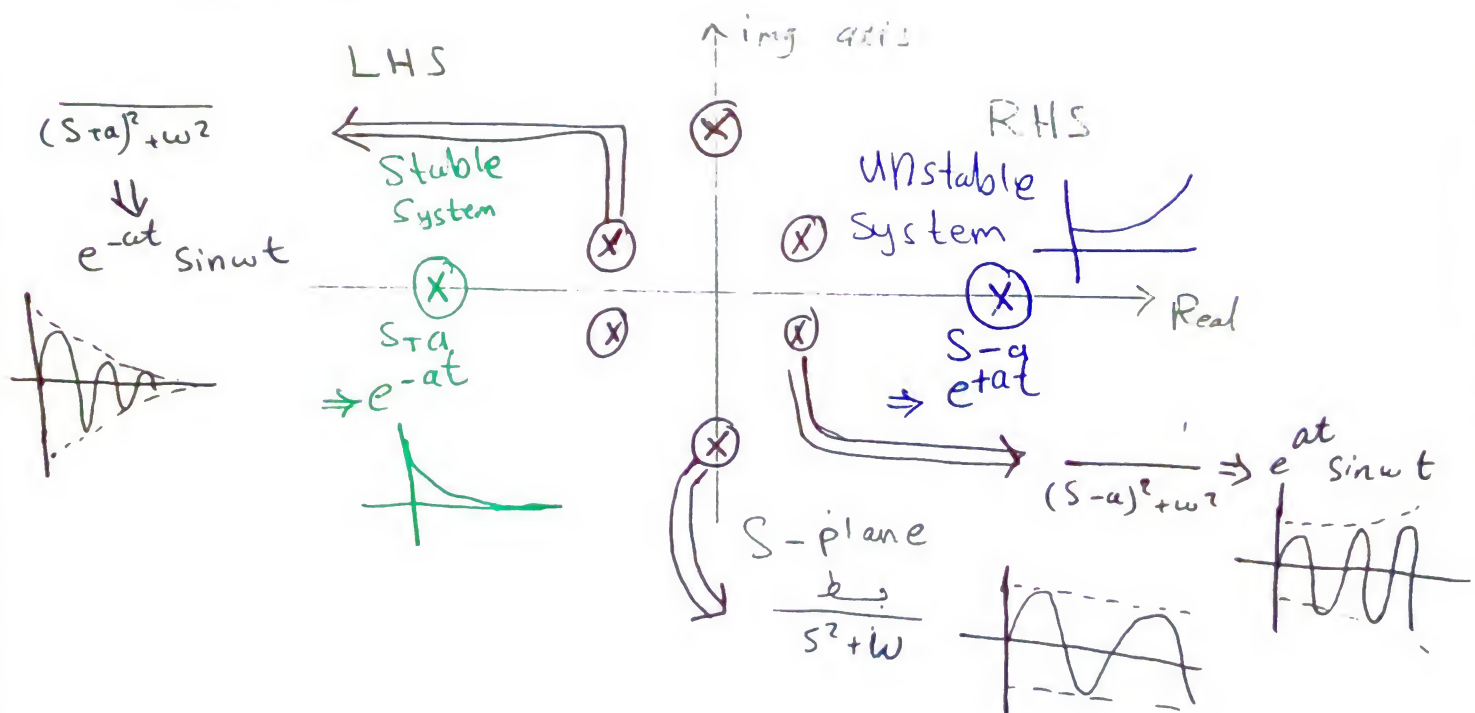 img axis
LHS
RHS
(S+a)²+ω²
⇓
e^-at sinωt
Stable
System
Unstable
System
Real
S+a
⇒ e^-at
S-a
⇒ e^+at
(S-a)²+ω²
⇒ e^at sinωt
S-plane
بسط
S²+ω